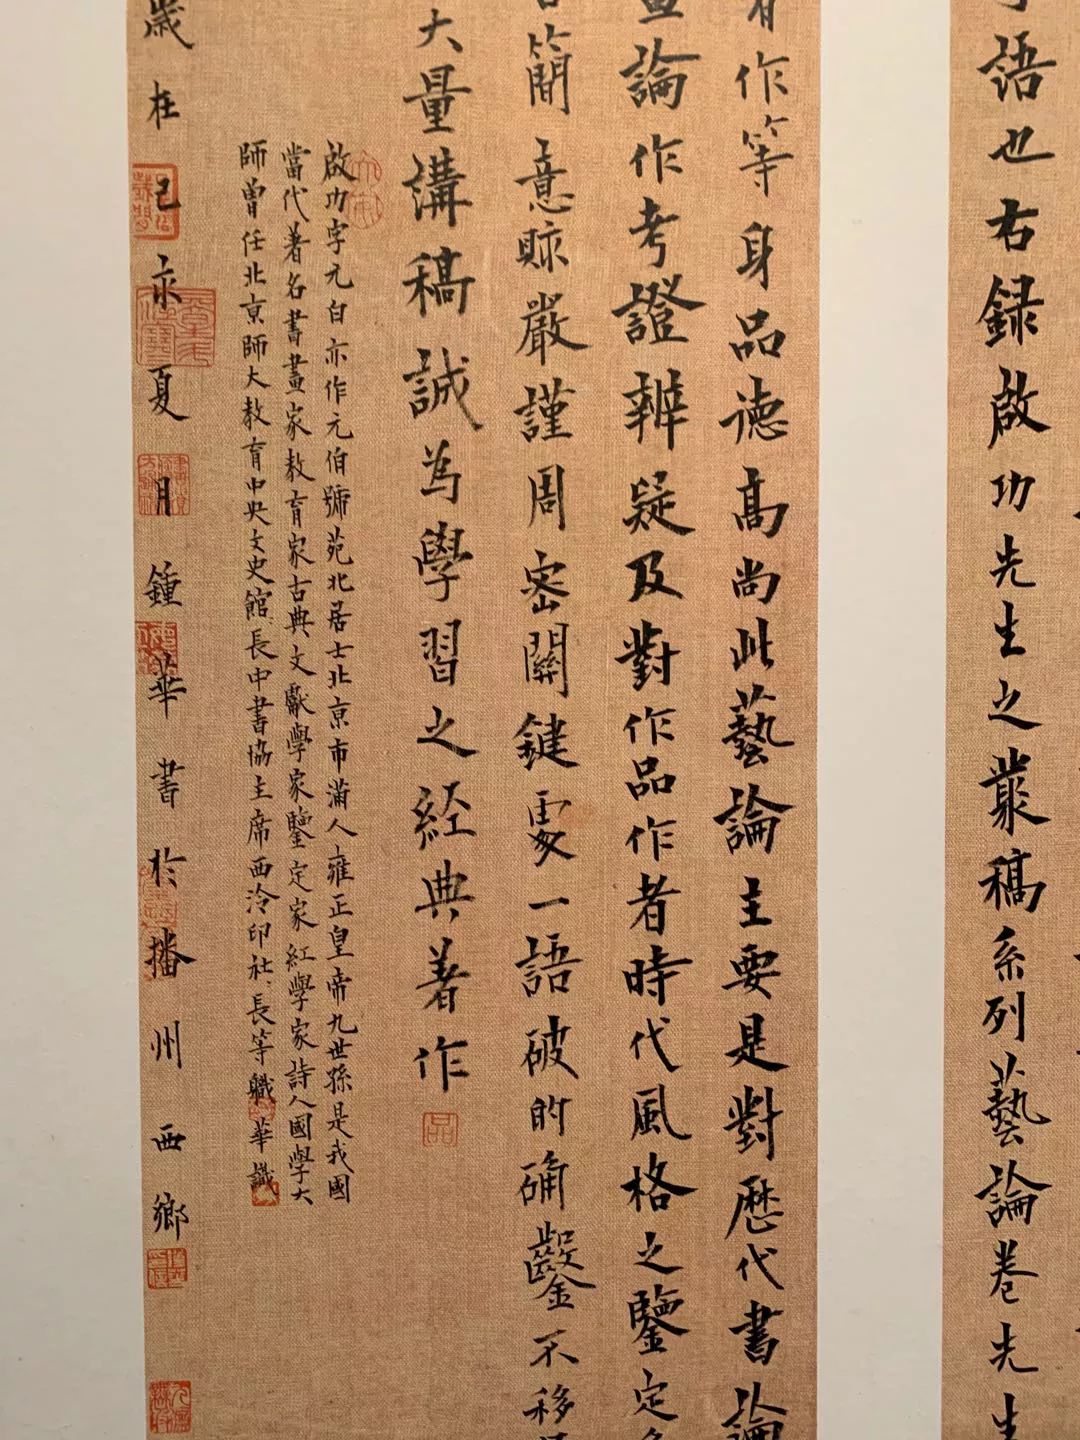 語也右録啟功先生之叢稿系列藝論卷先生
作等身品德高尚此藝論主要是對歷代書論
論作考證辨疑及對作品作者時代風格之鑒定
簡意賅嚴謹周密關鍵處一語破的确鑿不移
大量講稿誠為學習之經典著作
啟功字元白亦作元伯號苑北居士北京市滿人雍正皇帝九世孫是我國
當代著名書畫家教育家古典文獻學家鑒定家紅學家詩人國學大
師曾任北京師大教育中央文史館長中書協主席西泠印社長等職華識
歲在己亥夏月鍾華書於播州西鄉
品